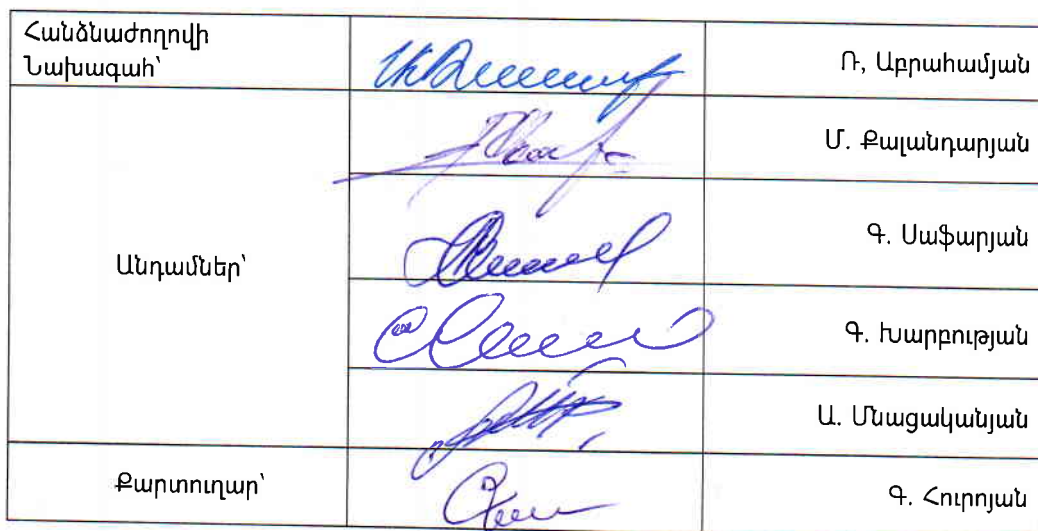 Հանձնաժողովի
Նախագահ՝
Ռ, Աբրահամյան
Մ. Քալանդարյան
Անդամներ՝
Գ. Սաֆարյան
Գ. Խարբության
Ա. Մնացականյան
Քարտուղար՝
Գ. Հուրոյան